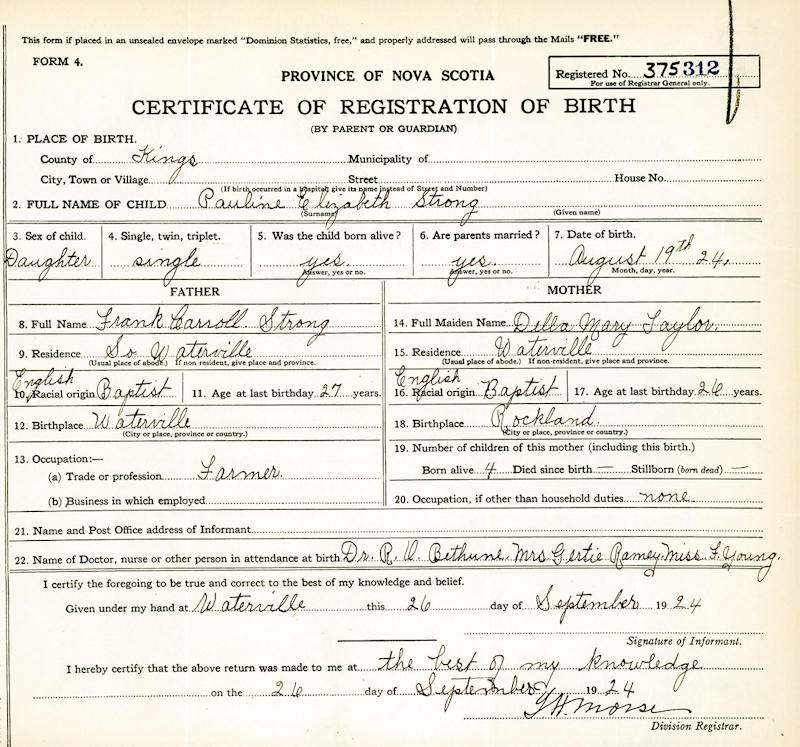 This form if placed in an unsealed envelope marked "Dominion Statistics, free," and properly addressed will pass through the Mails "FREE."
FORM 4.
PROVINCE OF NOVA SCOTIA
Registered No. 375312
For use of Registrar General only.
CERTIFICATE OF REGISTRATION OF BIRTH
(BY PARENT OR GUARDIAN)
1. PLACE OF BIRTH.
County of Kings Municipality of
City, Town or Village Street House No.
(If birth occurred in a hospital give its name instead of Street and Number)
2. FULL NAME OF CHILD Pauline Elizabeth Strong
(Surname) (Given name)
3. Sex of child. 4. Single, twin, triplet. 5. Was the child born alive? 6. Are parents married? 7. Date of birth.
Daughter single yes. yes. August 19th 24.
Answer, yes or no. Answer, yes or no. Month, day, year.
FATHER MOTHER
8. Full Name Frank Carroll Strong
9. Residence So Waterville
(Usual place of abode.) If non resident, give place and province.
English
10. Racial origin Baptist 11. Age at last birthday 27 years.
12. Birthplace Waterville
(City or place, province or country.)
13. Occupation:—
(a) Trade or profession Farmer.
(b) Business in which employed
14. Full Maiden Name Della Mary Taylor.
15. Residence Waterville
(Usual place of abode.) If non-resident, give place and province.
English
16. Racial origin Baptist 17. Age at last birthday 26 years.
18. Birthplace Rockland.
(City or place, province or country.)
19. Number of children of this mother (including this birth.)
Born alive 4 Died since birth — Stillborn (born dead) —
20. Occupation, if other than household duties none.
21. Name and Post Office address of Informant
22. Name of Doctor, nurse or other person in attendance at birth Dr. R. O. Bethune. Mrs Gertie Ramey. Miss F. Young.
I certify the foregoing to be true and correct to the best of my knowledge and belief.
Given under my hand at Waterville this 26 day of September 1924
Signature of Informant.
I hereby certify that the above return was made to me at the best of my knowledge
on the 26 day of September 1924
Morse
Division Registrar.